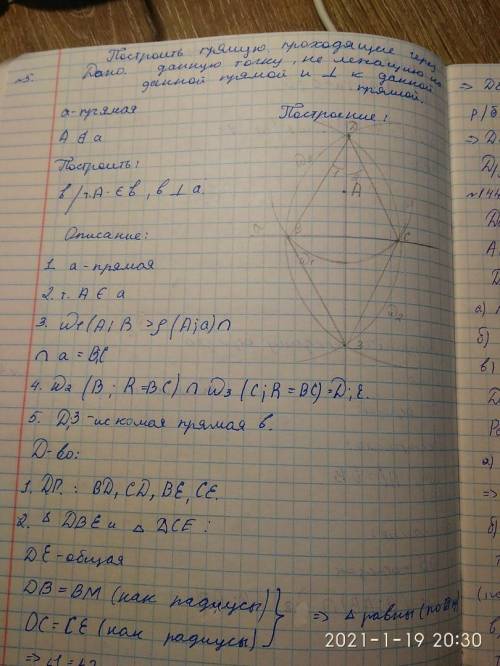 Построить прямую, проходящие через
№5. Дано. данную точку, не лежащую на
данной прямой и ⊥ к данной
прямой.
a-прямая
A ∉ a
Построение:
Построить:
в/т.A ∈ в, в ⊥ a
Описание:
1. a-прямая
2. т. A ∈ a
3. ω1(A; R > ρ(A;a) ∩
∩ a = B;C
4. ω2 (B; R=BC) ∩ ω3 (C; R=BC)=D;E.
5. D;З-искомая прямая в.
D-во:
1. DП.: BD, CD, BE, CE.
2. △ DBE и △ DCE:
DE-общая
DB=BM (как радиусы)
DC=CE (как радиусы)
=> △ равны
=> ∠1=∠2
D
A
B
C
a
ω1
ω2
З
=> D
=> D
а)
б)
в)
а)
=>
б)
2021-1-19 20:30